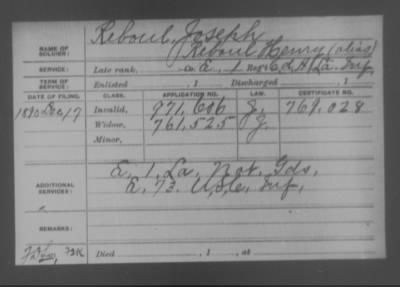 Reboul, Joseph
NAME OF SOLDIER: Reboul Henry (alias)
SERVICE: Late rank, Co. E, 1 Reg't C.d'A. La. Inf.
TERM OF SERVICE: Enlisted , 1 Discharged , 1
DATE OF FILING. CLASS. APPLICATION NO. LAW. CERTIFICATE NO.
1890 Dec 17 Invalid, 971,606 J. 769,028
Widow, 761,525 J.
Minor,
E, 1, La, Nat. Gds,
ADDITIONAL SERVICES: E, 73. U,S,C, Inf,
REMARKS:
Died , 1 , at